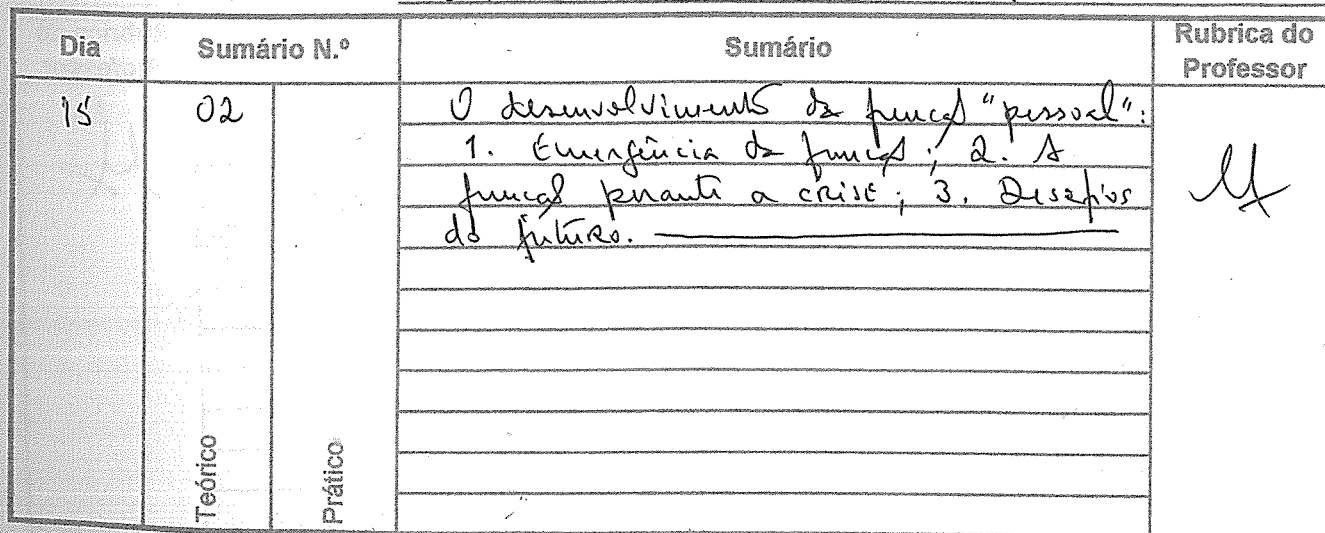 Dia Sumário N.º Sumário Rubrica do Professor
15 02 O desenvolvimento da função "pessoal":
1. Emergência da função; 2. A
função perante a crise; 3. Desafios
do futuro.
Teórico Prático